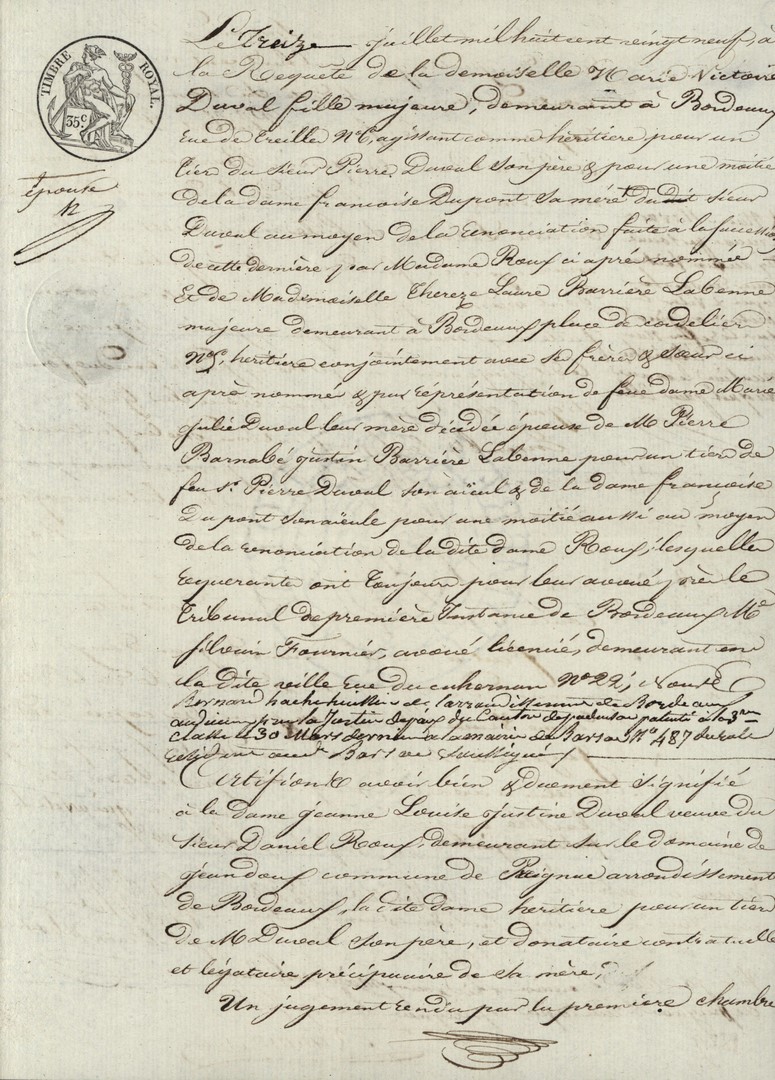 TIMBRE ROYAL.
35c
épouse
Le Treize juillet mil huit cent vingt neuf, à
la Requête de la demoiselle Marie Victoire
Duval fille majeure, demeurant à Bordeaux
rue de Treille No 6, agissant comme heritiere pour un
tier du sieur Pierre Duval son père & pour une moitié
de la dame francoise Dupont sa mère du dit sieur
Duval au moyen de la renonciation faite à la succession
de cette derniere par Madame Roux ci aprè nommée
Et de Mademoiselle Thereze Laure Barrière Labenne
majeure demeurant à Bordeaux place de cordelier
No, heritiere conjointement avec se frère & sœur ci
aprè nommé & par réprésentation de feue dame Marie
julie Duval leur mère décédée épouse de M. Pierre
Barnabé justin Barrière Labenne pour un tier de
feu sr. Pierre Duval son aïeul & de la dame francoise
Dupont son aïeule pour une moitié aussi au moyen
de la renonciation de la dite dame Roux; lesquelles
requerante ont toujours pour leur avoué prè le
Tribunal de première Instance de Bordeaux Me
silvain Fournier, avoué licencié, demeurant en
la dite ville rue du cahernan No 22; Nous
Bernard huissier de l'arrondissement de Bordeaux
audiencier la Justice de paix du Canton de podensac patenté à la 3me
classe le 30 Mars dernier a la mairie de Barsac No 487 du role
Barsac soussigné
Certifions avoir bien & duement signifié
à la dame jeanne Louise justine Duval veuve du
sieur Daniel Roux, demeurant sur le domaine de
jeandoux commune de Preignac arrondissement
de Bordeaux, la dite dame heritiere pour un tier
de M. Duval son père, et donataire contratuelle
et légataire précipuaire de sa mère;
Un jugement rendu par la première chambre